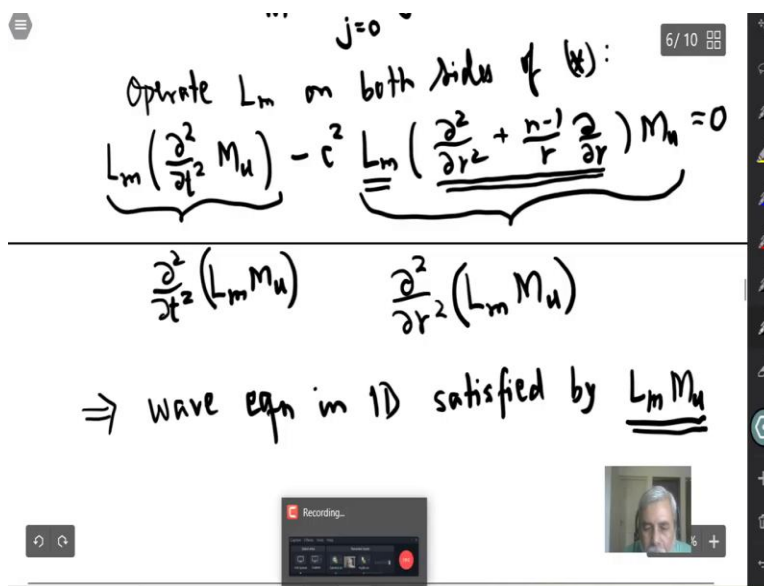 j=0
6/10
Operate Lm on both sides of (*):
Lm(∂²/∂t² Mu) - c² Lm(∂²/∂r² + n-1/r ∂/∂r) Mu = 0
∂²/∂t² (Lm Mu) ∂²/∂r² (Lm Mu)
⇒ wave eqn in 1D satisfied by Lm Mu
Recording...
% +